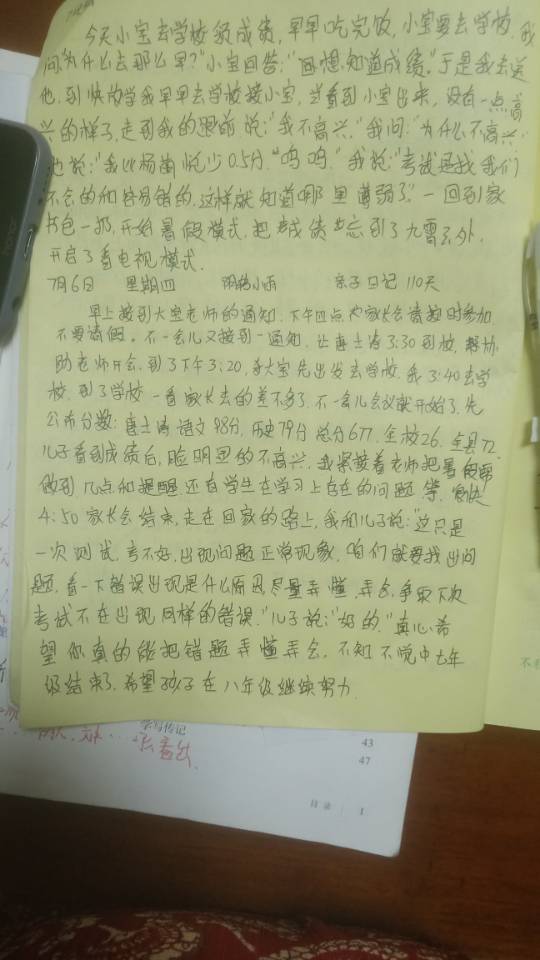 今天小宝去学校领成绩，早早吃完饭，小宝要去学校，我
问"为什么去那么早？"小宝回答："回想知道成绩。"于是我去送
他，到快放学我早早去学校接小宝，当看到小宝出来，没有一点高
兴的样子，走到我的跟前说："我不高兴。"我问："为什么不高兴"
他说："我比杨茜悦少0.5分。""呜呜。"我说："考试是找我们
不会的和容易错的，这样就知道哪里薄弱了。"一回到家
书包一扔，开始暑假模式，把成绩忘到了九霄云外，
开启了看电视模式。
7月6日 星期四 阴转小雨 亲子日记110天
早上接到大宝老师的通知，下午四点家长会请按时参加
不要请假。不一会儿又接到一通知，让唐士涛3:30到校，帮协
助老师开会，到了下午3:20，李大宝先出发去学校，我3:40去学
校，到了学校一看家长去的差不多了，不一会儿会议就开始了，先
公布分数：唐士涛语文98分，历史79分总分677，全校26，全县72，
儿子看到成绩后，脸明显的不高兴，我紧接着老师把暑假需
做到几点和提醒还有学生在学习上存在的问题等，
4:50家长会结束，走在回家的路上，我和儿子说："这只是
一次测试，考不好，出现问题正常现象，咱们就要找出问
题，看一下错误出现是什么原因尽量弄懂，弄会，争取下次
考试不在出现同样的错误。"儿子说："好的。"真心希
望你真的能把错题弄懂弄会，不知不觉中七年
级结束了，希望孩子在八年级继续努力
学写传记
43
47
目录 1